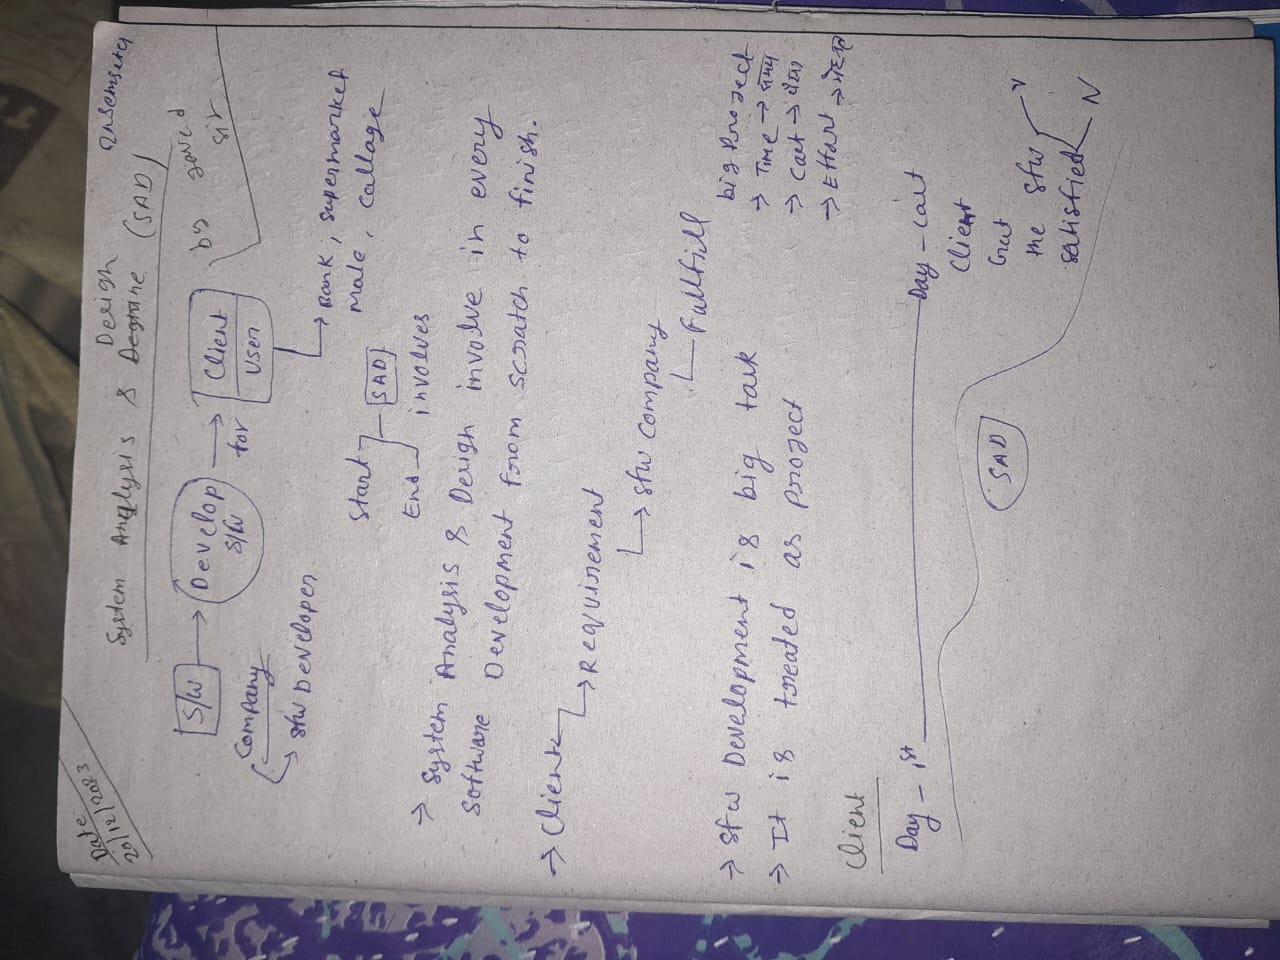 Date:
20/12/2023
System Anglysis & Degine (SAD)
Design
by Javed
sir
S/W
Develop
S/W
for
Client
User
Company
Sfw Developer
Bank, supermarket
Male, Callage
Start
End
SAD
involves
→ System Analysis & Design involve in every
Software Development from scratch to finish.
→ Client
Requirement
Sfw Company
Fullfill
→ Sfw Development is big task
→ It is treated as project
big Project
→ Time → समय
→ Cost → पैसा
→ Effort → मेहनत
Client
Day - 1st
Day - last
Client
Got
the Sfw
Satisfied
Y
N
SAD